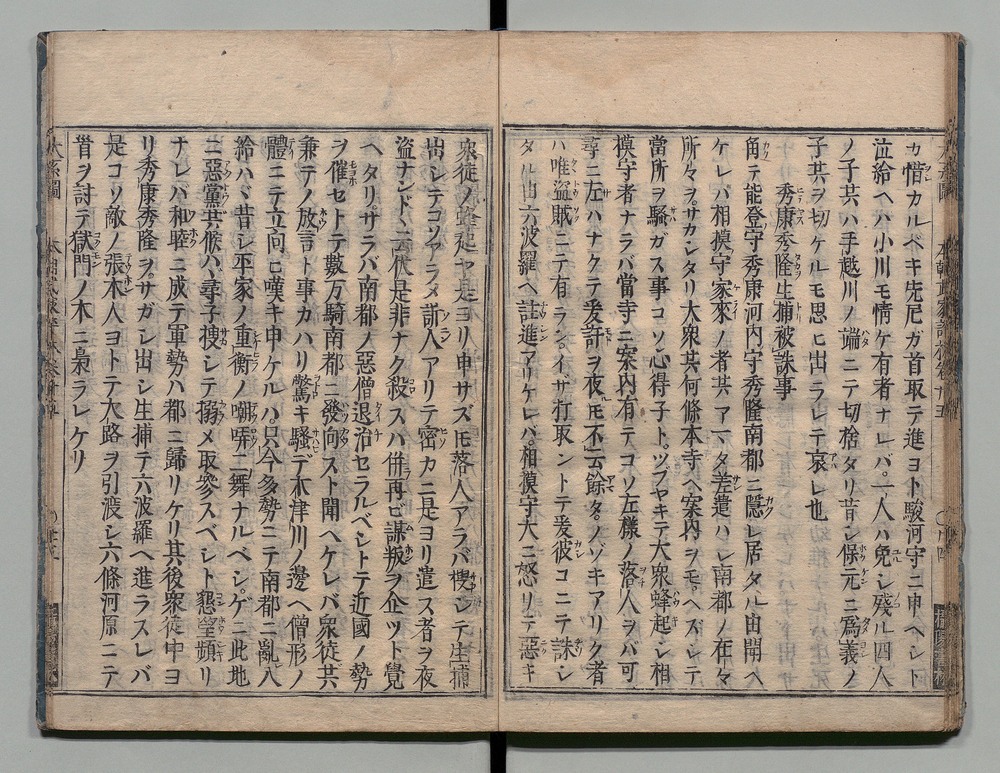 カ惜カルベキ先尼ガ首取テ進ヨト駿河守ニ申ヘシト
泣給ヘハ小川モ情ケ有者ナレバ。一人ハ免シ殘ル四人
ノ子共ハ手越川ノ端ニテ切捨タリ昔シ保元ニ爲義ノ
子共ヲ切ケルモ思ヒ出ラレテ哀レ也
秀康秀隆生捕被誅事
角テ能登守秀康河内守秀隆南都ニ隱レ居タル由聞ヘ
ケレバ相摸守家來ノ者共アマタ差遣ハシ南都ノ在々
所々ヲサカシタリ大衆共何條本寺ヘ案内ヲモヘズシテ
當所ヲ騷ガス事コソ心得子ト。ツブヤキテ大衆蜂起シ相
摸守者ナラバ當寺ニ案内有テコソ左樣ノ落人ヲバ可
尋ニ左ハナクテ爰許ヲ夜トモ不云餘タ。ノゾキアリク者
ハ唯盜賊ニテ有ラン。イサ打取ントテ爰彼コニテ誅シ
タル由六波羅ヘ註進アリケレバ。相摸守大ニ怒リテ惡キ
衆徒ノ蜂起ヤ是ヨリ申サズトモ落人アラバ搜シテ生捕
出シテコソアラメ訴人アリテ密カニ是ヨリ遣ス者ヲ夜
盜ナンドト云伏是非ナク殺スハ併再ビ謀叛ヲ企ツト覺
ヘタリサラバ南都ノ惡僧退治セラルベシトテ近國ノ勢
ヲ催セトテ數万騎南都ニ發向スト聞ヘケレバ衆徒共
兼テノ放言ト事カハリ驚キ騷デ木津川ノ邊ヘ僧形ノ
體ニテ立向ヒ嘆キ申ケルハ。只今多勢ニテ南都ニ亂入
給ハヾ昔シ平家ノ重衡ノ嘲哢二舞ナルベシ。ゲニ此地
ニ惡黨共候ハヾ尋子搜シテ搦メ取參スベシト懇望頻リ
ナレバ和睦ニ成テ軍勢ハ都ニ歸リケリ其後衆徒中ヨ
リ秀康秀隆ヲサガシ出シ生捕テ六波羅ヘ進ラスレバ
是コソ敵ノ張本人ヨトテ大路ヲ引渡シ六條河原ニテ
首ヲ討テ獄門ノ木ニ梟ラレケリ